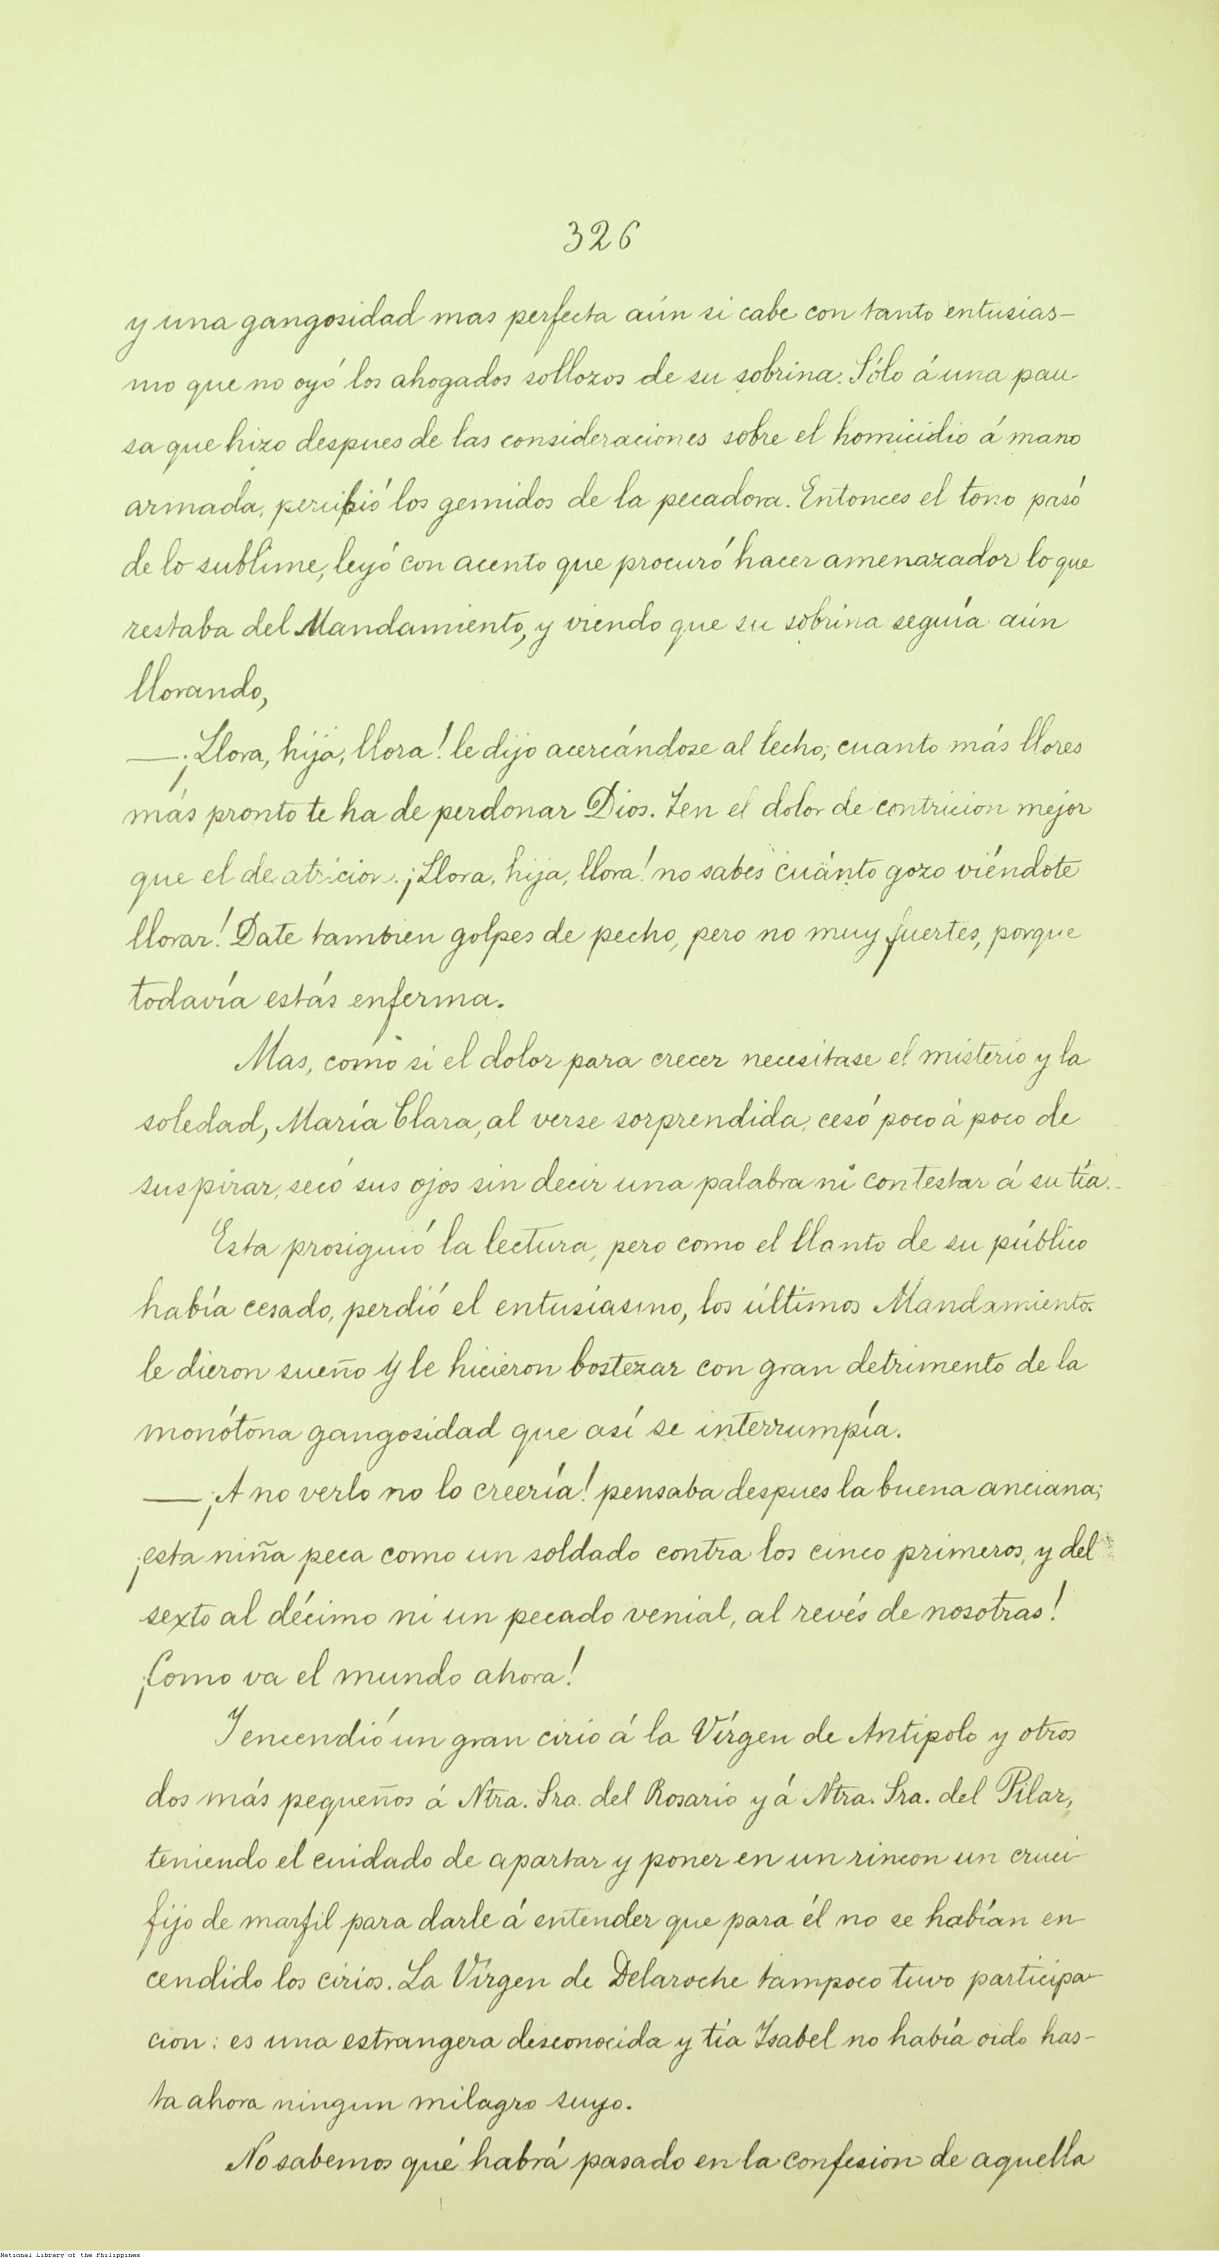 326
y una gangosidad mas perfecta aún si cabe con tanto entusias-
mo que no oyó los ahogados sollozos de su sobrina. Sólo á una pau-
sa que hizo despues de las consideraciones sobre el homicidio á mano
armada, percibió los gemidos de la pecadora. Entonces el tono pasó
de lo sublime, leyó con acento que procuró hacer amenazador lo que
restaba del Mandamiento, y viendo que su sobrina seguía aún
llorando,
—¡Llora, hija, llora! le dijo acercándose al lecho; cuanto más llores
más pronto te ha de perdonar Dios. Ten el dolor de contricion mejor
que el de atricion. ¡Llora, hija, llora! no sabes cuánto gozo viéndote
llorar! Date tambien golpes de pecho, pero no muy fuertes, porque
todavía estás enferma.
Mas, como si el dolor para crecer necesitase el misterio y la
soledad, María Clara, al verse sorprendida, cesó poco á poco de
suspirar, secó sus ojos sin decir una palabra ni contestar á su tía.
Esta prosiguió la lectura, pero como el llanto de su público
había cesado, perdió el entusiasmo, los últimos Mandamientos
le dieron sueño y le hicieron bostezar con gran detrimento de la
monótona gangosidad que así se interrumpía.
—¡A no verlo no lo creería! pensaba despues la buena anciana;
¡esta niña peca como un soldado contra los cinco primeros, y del
sexto al décimo ni un pecado venial, al revés de nosotras!
¡Como va el mundo ahora!
Y encendió un gran cirio á la Vírgen de Antipolo y otros
dos más pequeños á Ntra. Sra. del Rosario y á Ntra. Sra. del Pilar,
teniendo el cuidado de apartar y poner en un rincon un cruci-
fijo de marfil para darle á entender que para él no se habían en-
cendido los cirios. La Vírgen de Delaroche tampoco tuvo participa-
cion: es una estrangera desconocida y tía Isabel no había oido has-
ta ahora ningun milagro suyo.
No sabemos qué habrá pasado en la confesion de aquella
National Library of the Philippines